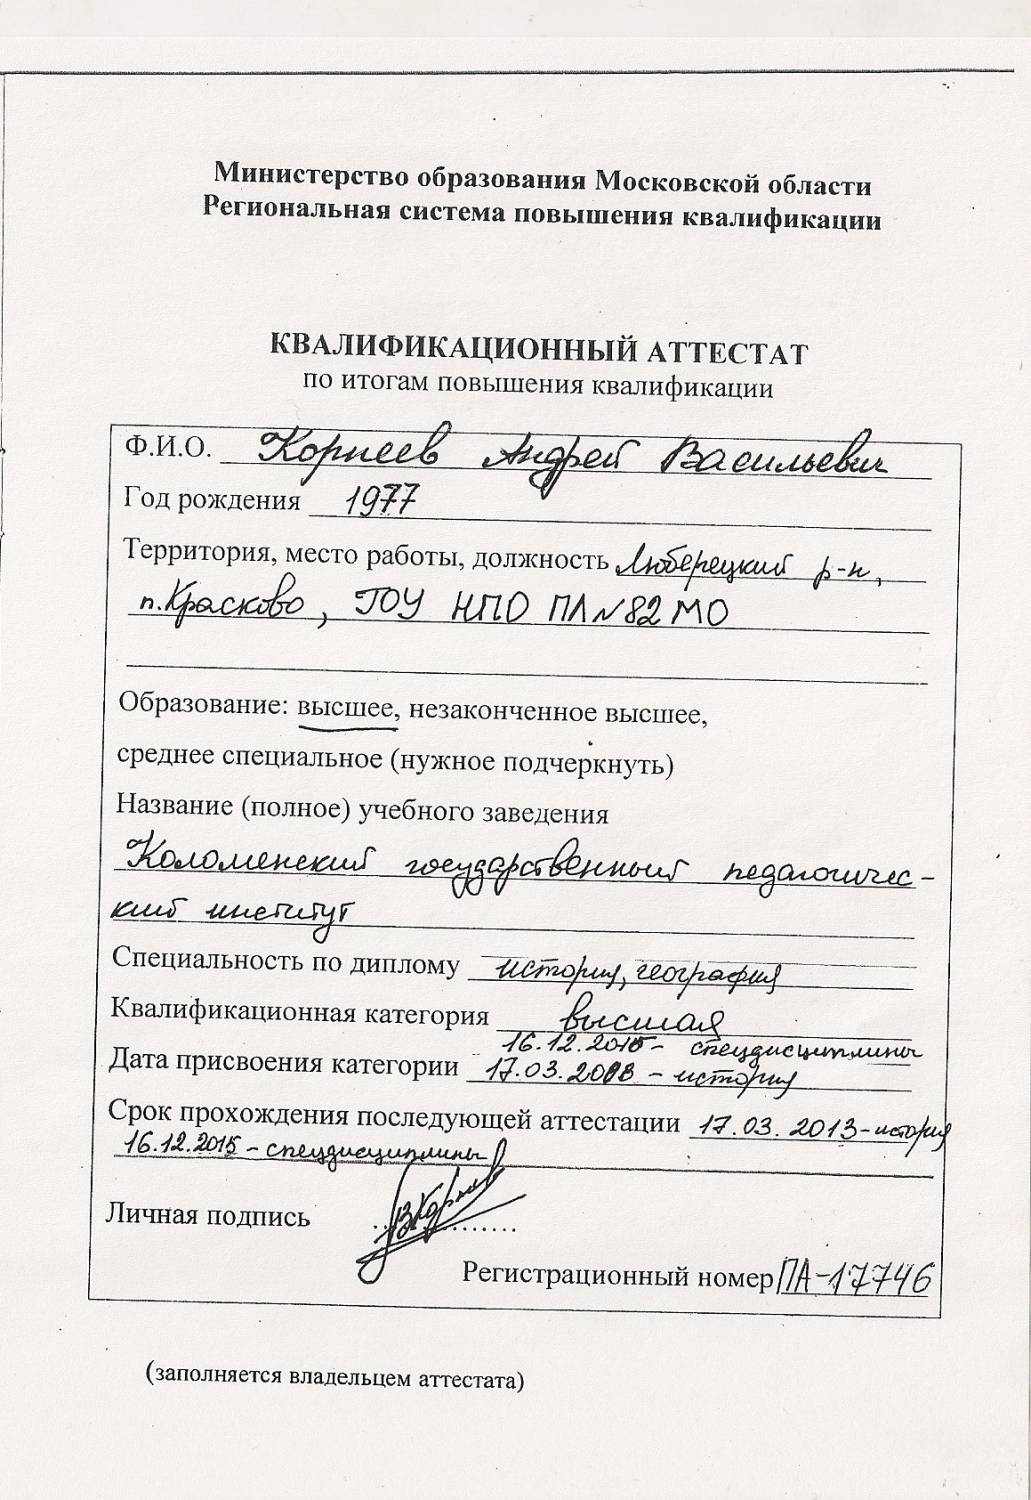 Министерство образования Московской области
Региональная система повышения квалификации
КВАЛИФИКАЦИОННЫЙ АТТЕСТАТ
по итогам повышения квалификации
Ф.И.О. Корнеев Андрей Васильевич
Год рождения 1977
Территория, место работы, должность Люберецкий р-н,
п.Красково, ГОУ НПО ПЛ №82 МО
Образование: высшее, незаконченное высшее,
среднее специальное (нужное подчеркнуть)
Название (полное) учебного заведения
Коломенский государственный педагогичес-
кий институт
Специальность по диплому история, география
Квалификационная категория высшая
16.12.2015 - спецдисциплины
Дата присвоения категории 17.03.2008 - история
Срок прохождения последующей аттестации 17.03.2013-история
16.12.2015 - спецдисциплины
Личная подпись
Регистрационный номер ПА-17746
(заполняется владельцем аттестата)